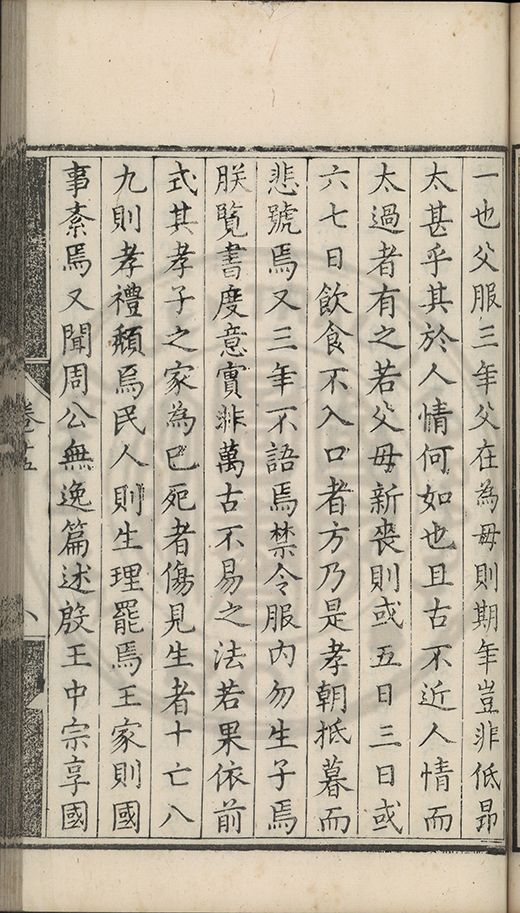 一也父服三年父在為母則期年豈非低昻
太甚乎其於人情何如也且古不近人情而
太過者有之若父母新喪則或五日三日或
六七日飲食不入口者方乃是孝朝抵暮而
悲號焉又三年不語焉禁令服內勿生子焉
朕覽書度意實非萬古不易之法若果依前
式其孝子之家為已死者傷見生者十亡八
九則孝禮頽焉民人則生理罷焉王家則國
事紊焉又聞周公無逸篇述殷王中宗享國
卷十五
八